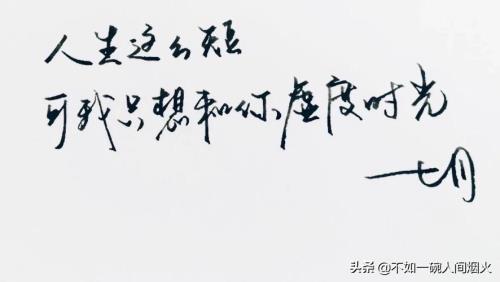 人生这么短
可我只想和你虚度时光
——七月
头条 @不如一碗人间烟火